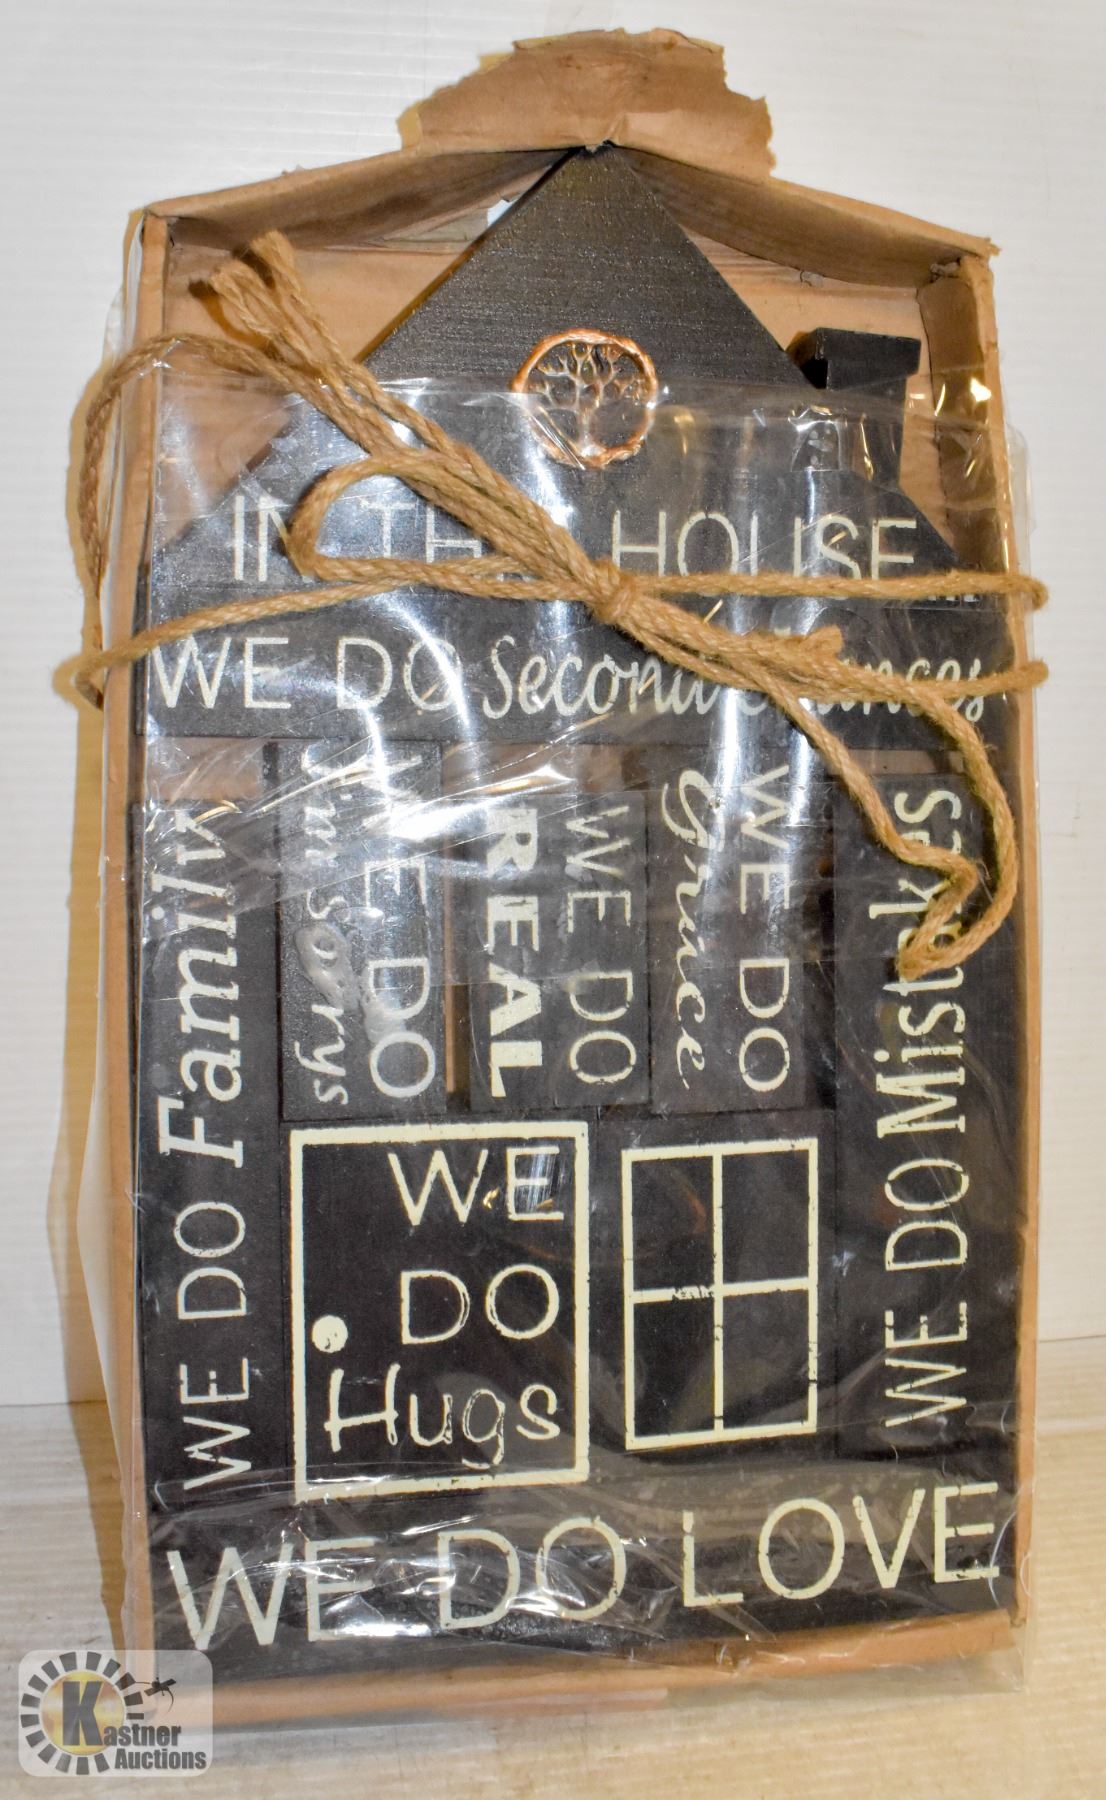 IN THIS HOUSE
WE DO Second Chances
WE DO Family
WE DO
I'm Sorrys
WE DO
REAL
WE DO
Grace
WE DO Mistakes
WE
DO
Hugs
WE DO LOVE
Kastner
Auctions